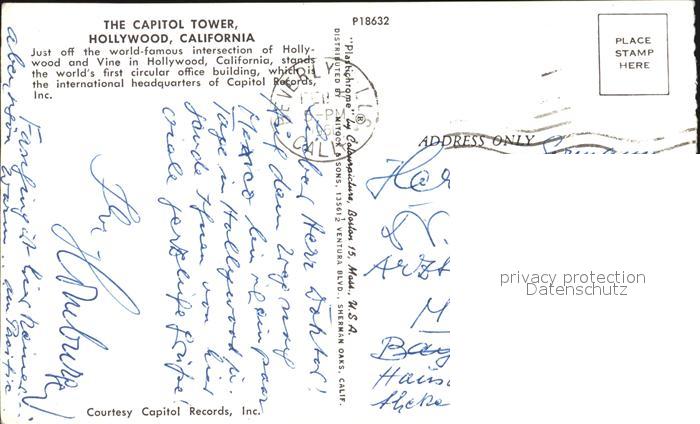 THE CAPITOL TOWER,
HOLLYWOOD, CALIFORNIA
Just off the world-famous intersection of Holly-
wood and Vine in Hollywood, California, stands
the world's first circular office building, which is
the international headquarters of Capitol Records,
Inc.
P18632
PLACE
STAMP
HERE
"Plastichrome" ® by Colourpicture, Boston 15, Mass., U.S.A.
DISTRIBUTED BY MITOCK & SONS, 13561½ VENTURA BLVD., SHERMAN OAKS, CALIF.
BEVERLY HILLS
PM
CALIF
ADDRESS ONLY
Lieber Herr Doktor!
Auf dem Weg nach
Mexico bin ich ein paar
Tage in Hollywood u.
sende Ihnen von hier
viele herzliche Grüße!
Ihr
Fasching ist hier keiner..
aber schön warm..
privacy protection
Datenschutz
Courtesy Capitol Records, Inc.